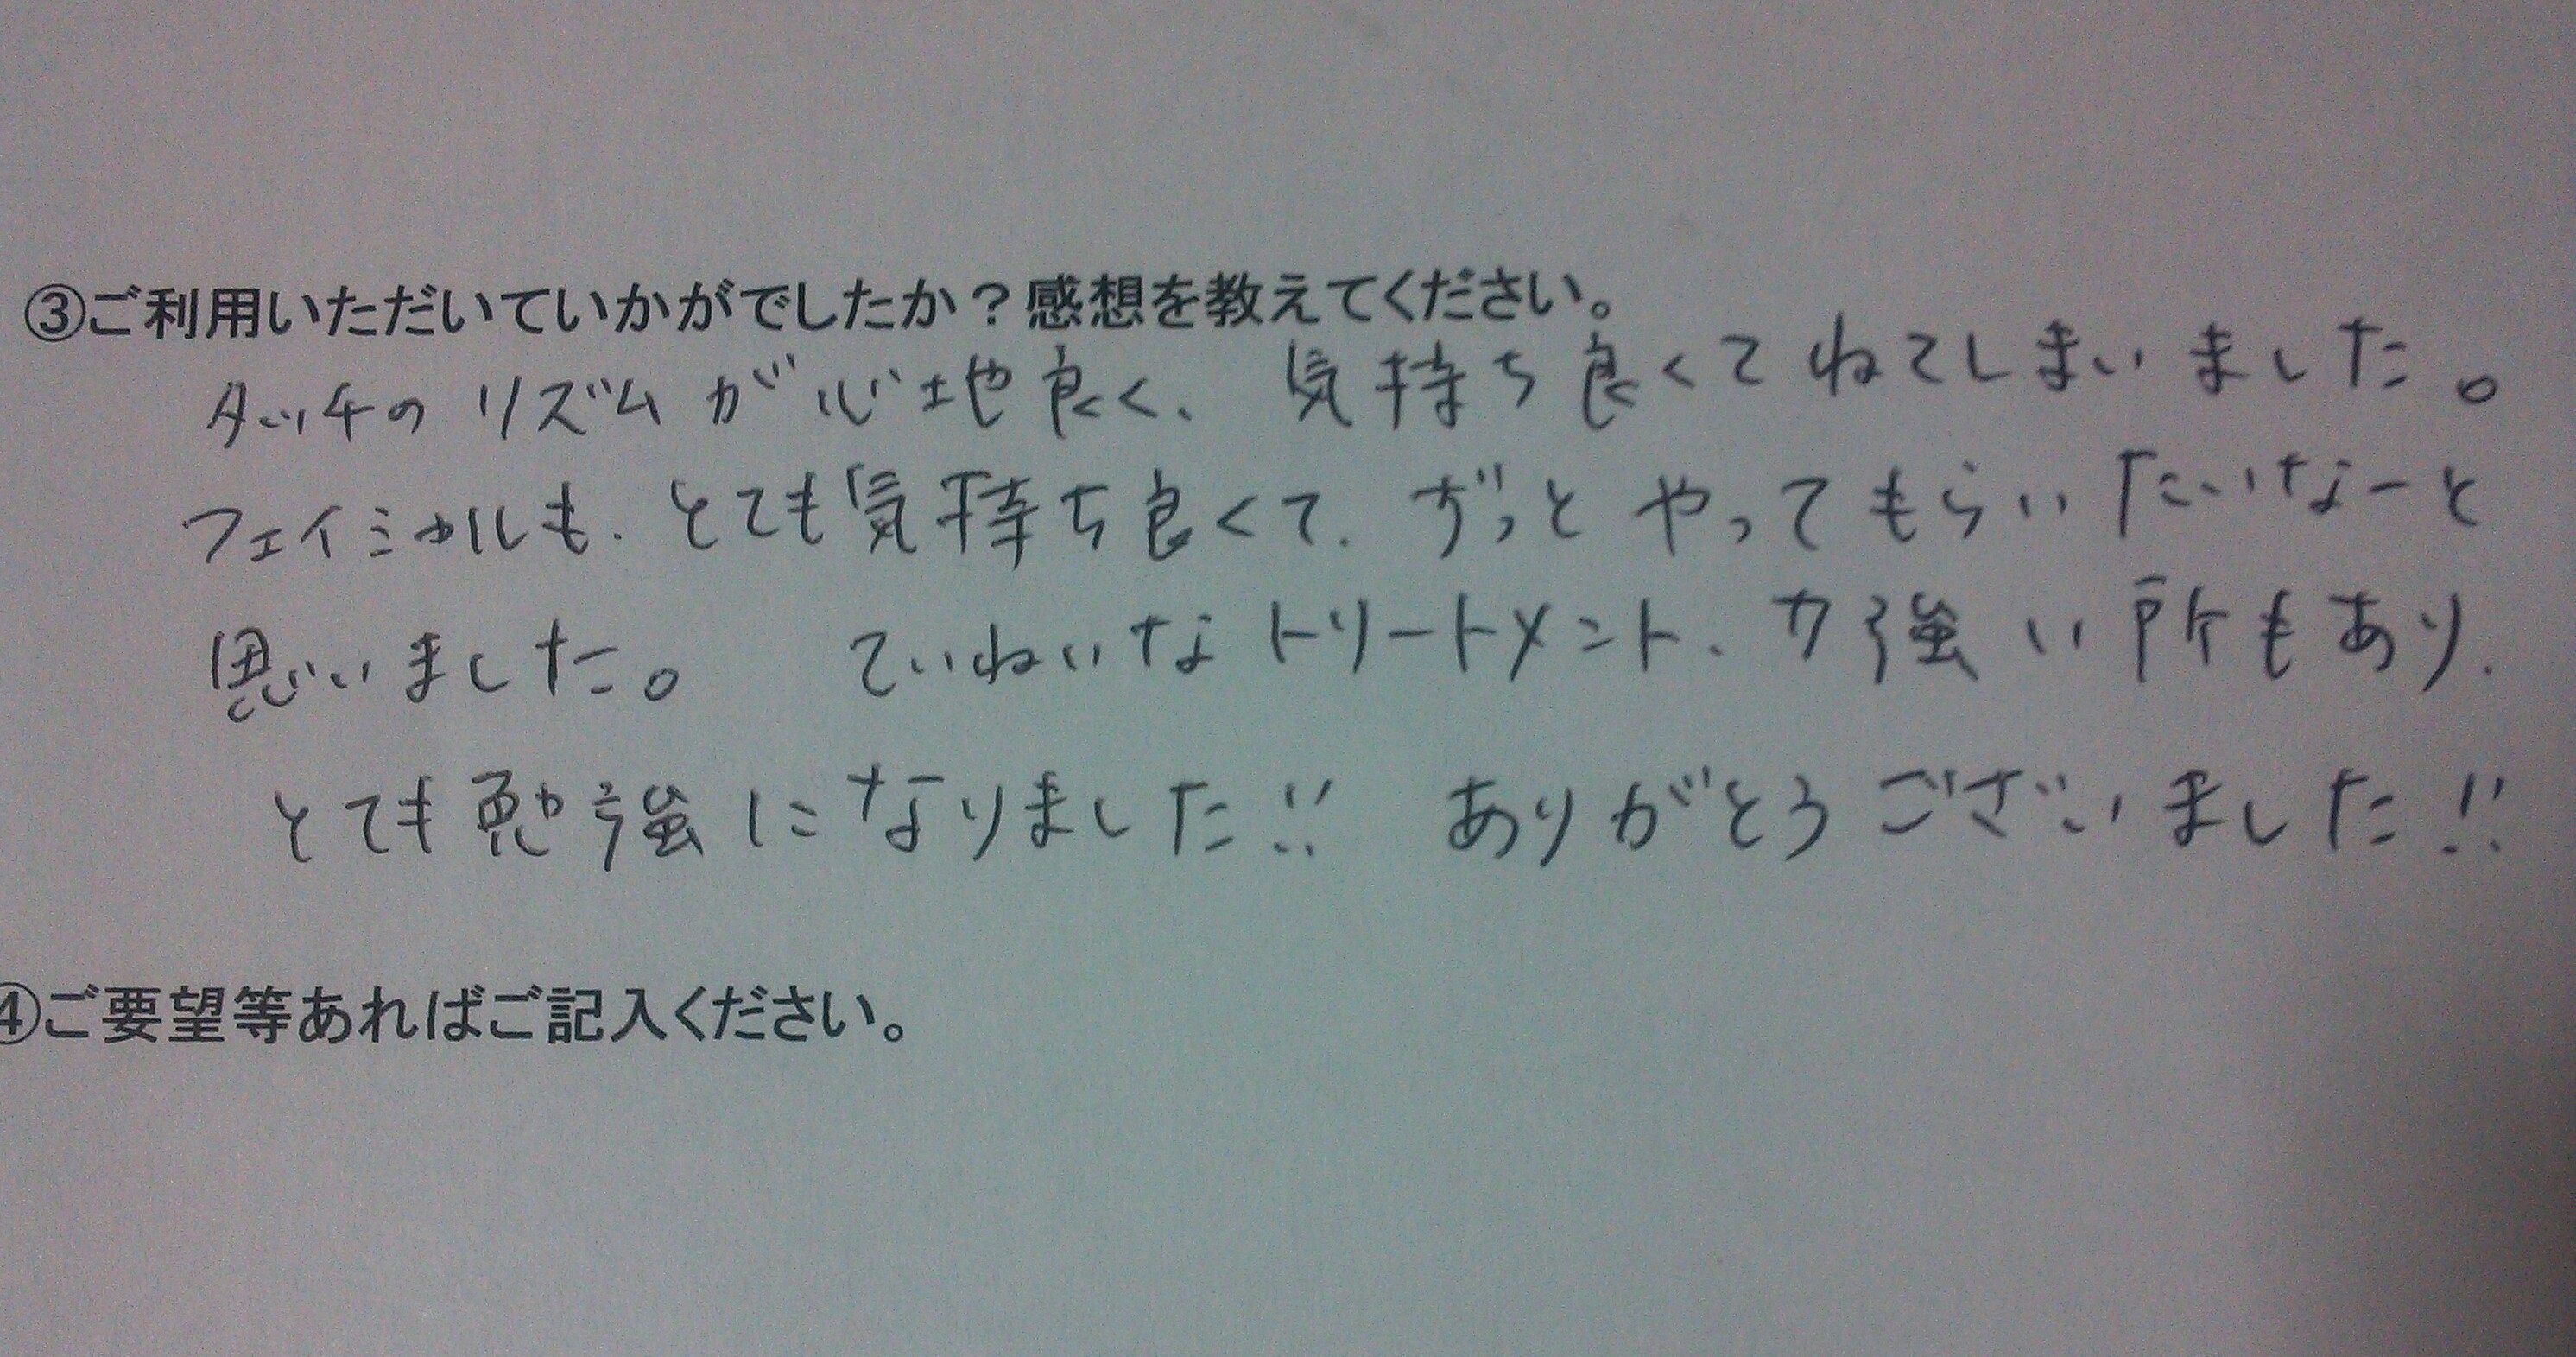 ③ご利用いただいていかがでしたか？感想を教えてください。
タッチのリズムが心地良く、気持ち良くてねてしまいました。
フェイシャルも、とても気持ち良くて、ずっとやってもらいたいなーと
思いました。 ていねいなトリートメント、力強い所もあり、
とても勉強になりました!! ありがとうございました!!
④ご要望等あればご記入ください。